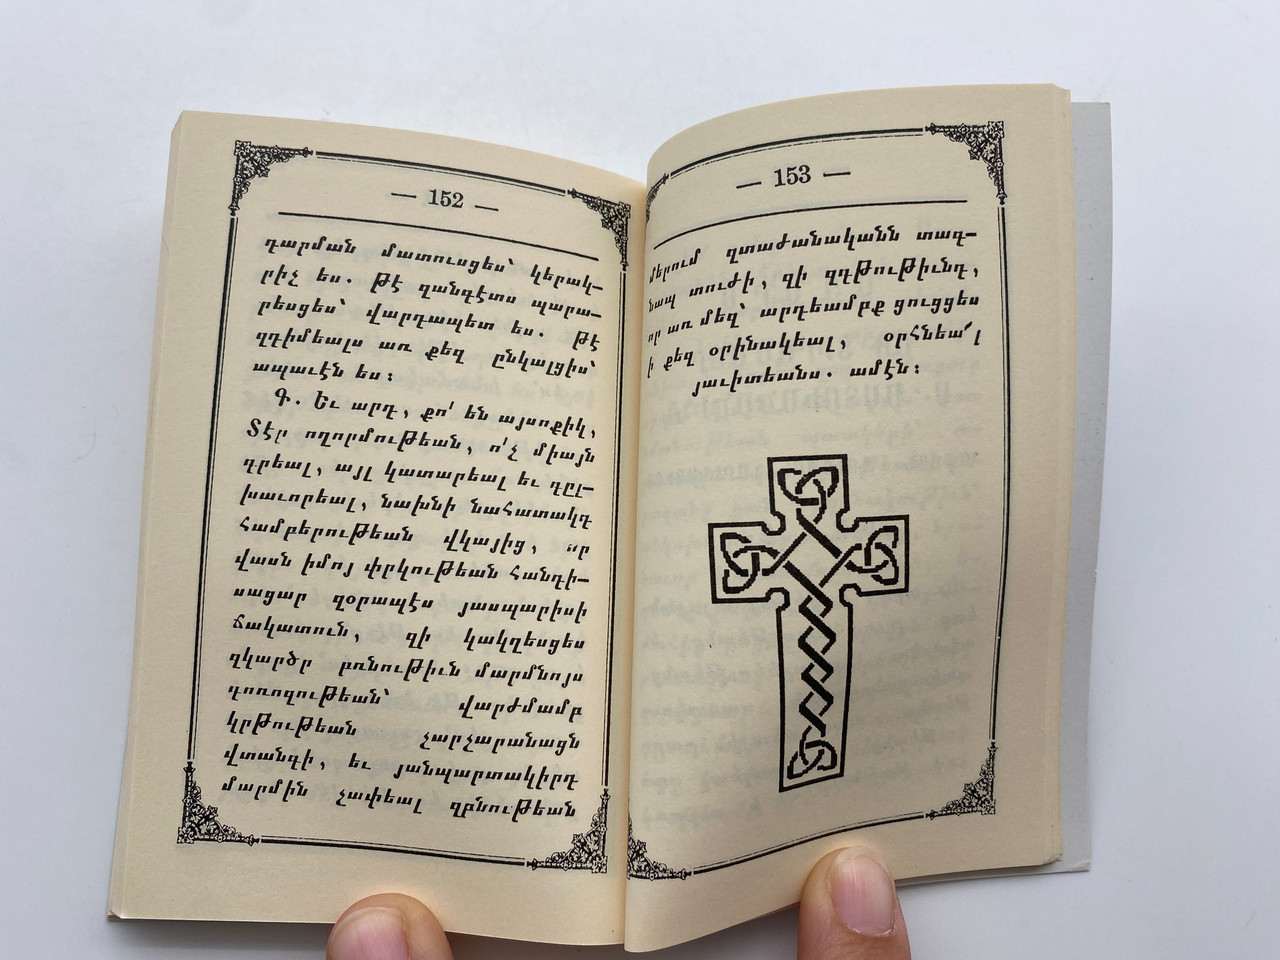 — 152 —
դարման մատուսցես՝ կերակ-
րիչ ես. թէ զանգէտս պարա-
րեսցես՝ վարդապետ ես. թէ
զդիմեալս առ քեզ ընկալցիս՝
ապաւէն ես։
Գ. Եւ արդ, քո՛ են այսոքիկ,
Տէր ողորմութեան, ո՛չ միայն
գրեալ, այլ կատարեալ եւ գըլ-
խաւորեալ, նախնի նահատակդ
համբերութեան վկայից, որ
վասն իմոյ փրկութեան հանդի-
սացար զօրապէս յասպարիսի
ճակատուն, զի կակղեսցես
զկարծր բռնութիւն մարմնոյս
գոռոզութեան՝ վարժմամբ
կրթութեան չարչարանացն
վտանգի, եւ յանպարտակիրդ
մարմին չափեալ զբնութեան
— 153 —
մերում զտաժանականն տագ-
նապ տուժի, զի զգթութիւնդ,
որ առ մեզ՝ արդեամբք ցուցցես
ի քեզ օրինակեալ, օրհնեա՜լ
յաւիտեանս. ամէն։